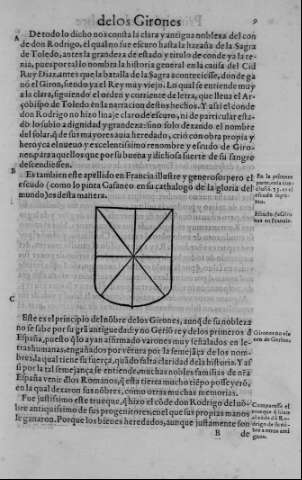 de los Girones
9
A
De todo lo dicho nos consta la clara y antigua nobleza del con
de don Rodrigo, el qual no fue escuro hasta la hazaña de la Sagra
de Toledo, antes la grandeza de estado y titulo de conde ya la te
nia, pues por tal lo nombra la historia general en la causa del Cid
Ruy Diaz, antes que la batalla de la Sagra aconteciesse, donde ga
nó el Giron, siendo ya el Rey muy viejo. Lo qual se entiende muy
a la clara, siguiendo el orden y corriente de letra, que lleua el Ar
çobispo de Toledo en la narracion destos hechos. Y assi el conde
don Rodrigo no hizo linaje claro de escuro, ni de particular esta-
do lo subio a dignidad y grandeza: sino solo dexando el nombre
del solar, q̃ de sus mayores auia heredado, crio con obra propia y
heroyca el nueuo y excelentissimo renombre y escudo de Giro-
nes para aquellos que por su buena y dichosa suerte de su sangre
descendiessen.
B
Es tambien este apellido en Francia illustre y generoso: pero el
escudo (como lo pinta Casaneo en su cathalogo de la gloria del
mundo) es desta manera.
Escudo de Giro
nes en Francia.
C
Este es el principio del nõbre de los Girones, aunq̃ de su nobleza
no se sabe por su grã antiguedad: y no Geriõ rey de los primeros d̃
España, puesto q̃ lo ayan affirmado varones muy señalados en le-
tras humanas, engañados por vẽtura por la semejãça de los nom-
bres, la qual tiene su fuerça, quãdo falta claridad de la historia. Y assi
si por la tal semejança se entiende, muchas nobles familias de nr̃a
España venir d̃ los Romanos, q̃ esta tierra mucho tiẽpo posseyerõ,
en la qual dexaron sus nõbres, como otras muchas memorias.
Fue justissimo este trueque, q̃ hizo el cõde don Rodrigo del nõ-
bre antiquissimo de sus progenitores, en el que sus propias manos
le ganaron. Porque los bienes heredados, aunque justamente son
Girones no vie
nen de Gerion.
B
de